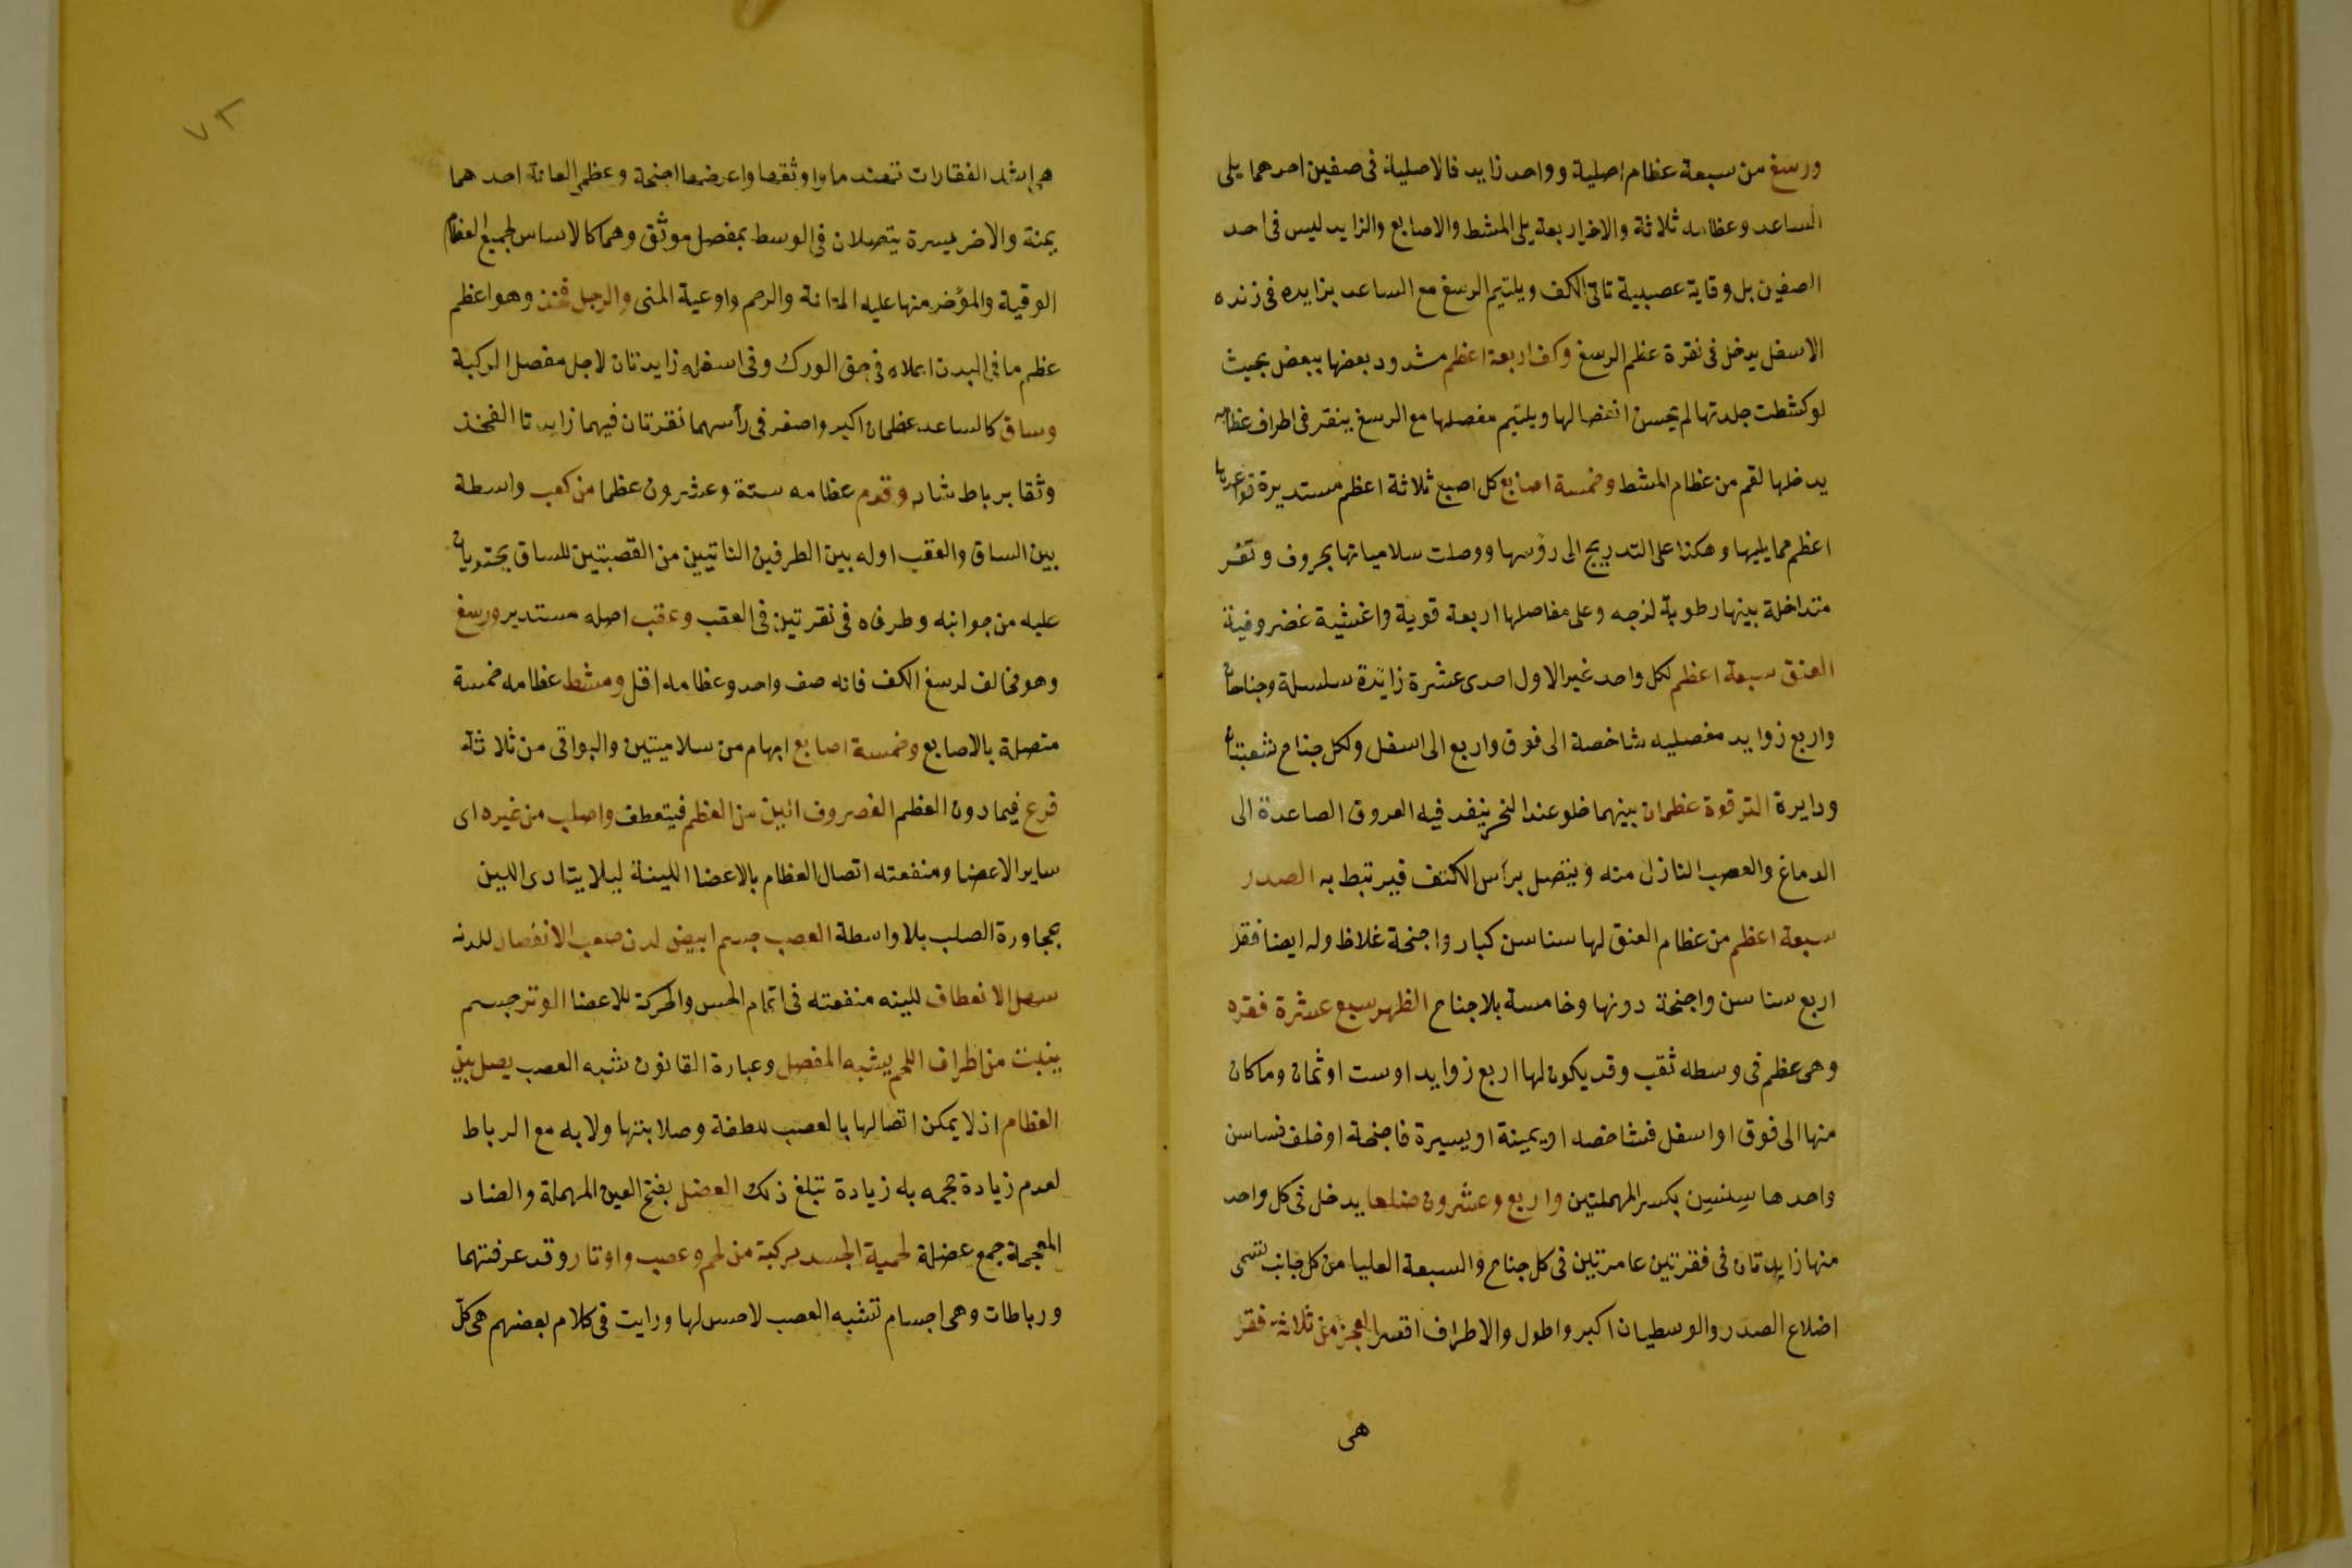 ورسغ من سبعة عظام اصلية وواحد زايد فالاصلية فى صفين احدهما يلى
الساعد وعظامه ثلاثة والاخر اربعة يلى المشط والاصابع والزايد ليس فى احد
الصفين بل وقاية عصبية تاتى الكف ويلتيم الرسغ مع الساعد بزايده فى زنده
الاسفل يدخل فى نقرة عظم الرسغ وكف اربعة اعظم مشدود بعضها ببعض بحيث
لو كشطت جلدتها لم يحسن انفصالها ويلتيم مفصلها مع الرسغ بنقر فى اطراف عظامه
يدخلها لقم من عظام المشط وخمسة اصابع كل اصبع ثلاثة اعظم مستديرة قواعدها
اعظم مما يليها وهكذا على التدريج الى رؤسها ووصلت سلامياتها بحروف ونقر
متداخلة بينها رطوبة لزجه وعلى مفاصلها اربعة قوية واغشية غضروفية
العنق سبعة اعظم لكل واحد غير الاول احدى عشرة زايدة سلسلة وجناحان
واربع زوايد مفصليه شاخصة الى فوق واربع الى اسفل ولكل جناح شعبتان
ودايرة الترقوة عظمان بينهما خلو عند النحر ينفد فيه العروق الصاعدة الى
الدماغ والعصب النازل منه ويتصل براس الكتف فيرتبط به الصدر
سبعة اعظم من عظام العنق لها سناسن كبار واجنحة غلاظ وله ايضا فقر
اربع سناسن واجنحة دونها وخامسة بلا جناح الظهر سبع عشرة فقره
وهى عظم فى وسطه ثقب وقد يكون لها اربع زوايد او ست او ثمان وما كان
منها الى فوق او اسفل فشاخصه او يمينة او يسيرة فاجنحة او خلف فساسن
واحدها سِنسِن بكسر المهملتين واربع وعشرون ضلعا يدخل فى كل واحد
منها زايدتان فى فقرتين عامرتين فى كل جناح والسبعة العليا من كل جانب تسمى
اضلاع الصدر والوسطيان اكبر واطول والاطراف اقصر العجز من ثلاثة فقر
هى
٧٢
هى اشد الفقارات تهندما واوثقها واعرضها اجنحة وعظم العانة احدهما
يمنة والاخر يسرة يتصلان فى الوسط بمفصل موثق وهما كالاساس لجميع العظام
الوقية والمؤخر منها عليه المثانة والرحم واوعية المنى والرجل فخذ وهو اعظم
عظم ما فى البدن اعلاه فى حق الورك وفى اسفله زايدتان لاجل مفصل الركبة
وساق كالساعد عظمان اكبر واصغر فى رأسهما نقرتان فيهما زايدتا الفخذ
وثقا برباط شاد وقدم عظامه ستة وعشرون عظما من كعب واسطة
بين الساق والعقب اوله بين الطرفين الناتيين من القصبتين للساق يحتويان
عليه من جوانبه وطرفاه فى نقرتين فى العقب وعقب اصله مستدير ورسغ
وهو مخالف لرسغ الكف فانه صف واحد وعظامه اقل ومشط عظامه خمسة
متصلة بالاصابع وخمسة اصابع ابهام من سلاميتين والبواقى من ثلاثة
فرع فيما دون العظم الغصروف الين من العظم فيتعطف واصلب من غيره اى
ساير الاعضا ومنفعته اتصال العظام بالاعضا اللينة ليلا يتادى اللين
بمجاورة الصلب بلا واسطة العصب جسم ابيض لدن صعب الانفصال للدنه
سهل الانعطاف للينه منفعته فى اتمام الحس والحركة للاعضا الوتر جسم
ينبت من اطراف اللحم يشبه المفصل وعبارة القانون شبه العصب يصل بين
العظام اذ لا يمكن اتصالها بالعصب للطفة وصلابتها ولا به مع الرباط
لعدم زيادة حجمه به زيادة تبلغ ذلك العضل بفتح العين المهملة والضاد
المعجمة جمع عضلة لحمية الجسد مركبة من لحم وعصب واوتار وقد عرفتهما
ورباطات وهى اجسام تشبه العصب لا حس لها ورايت فى كلام بعضهم هى كلّ